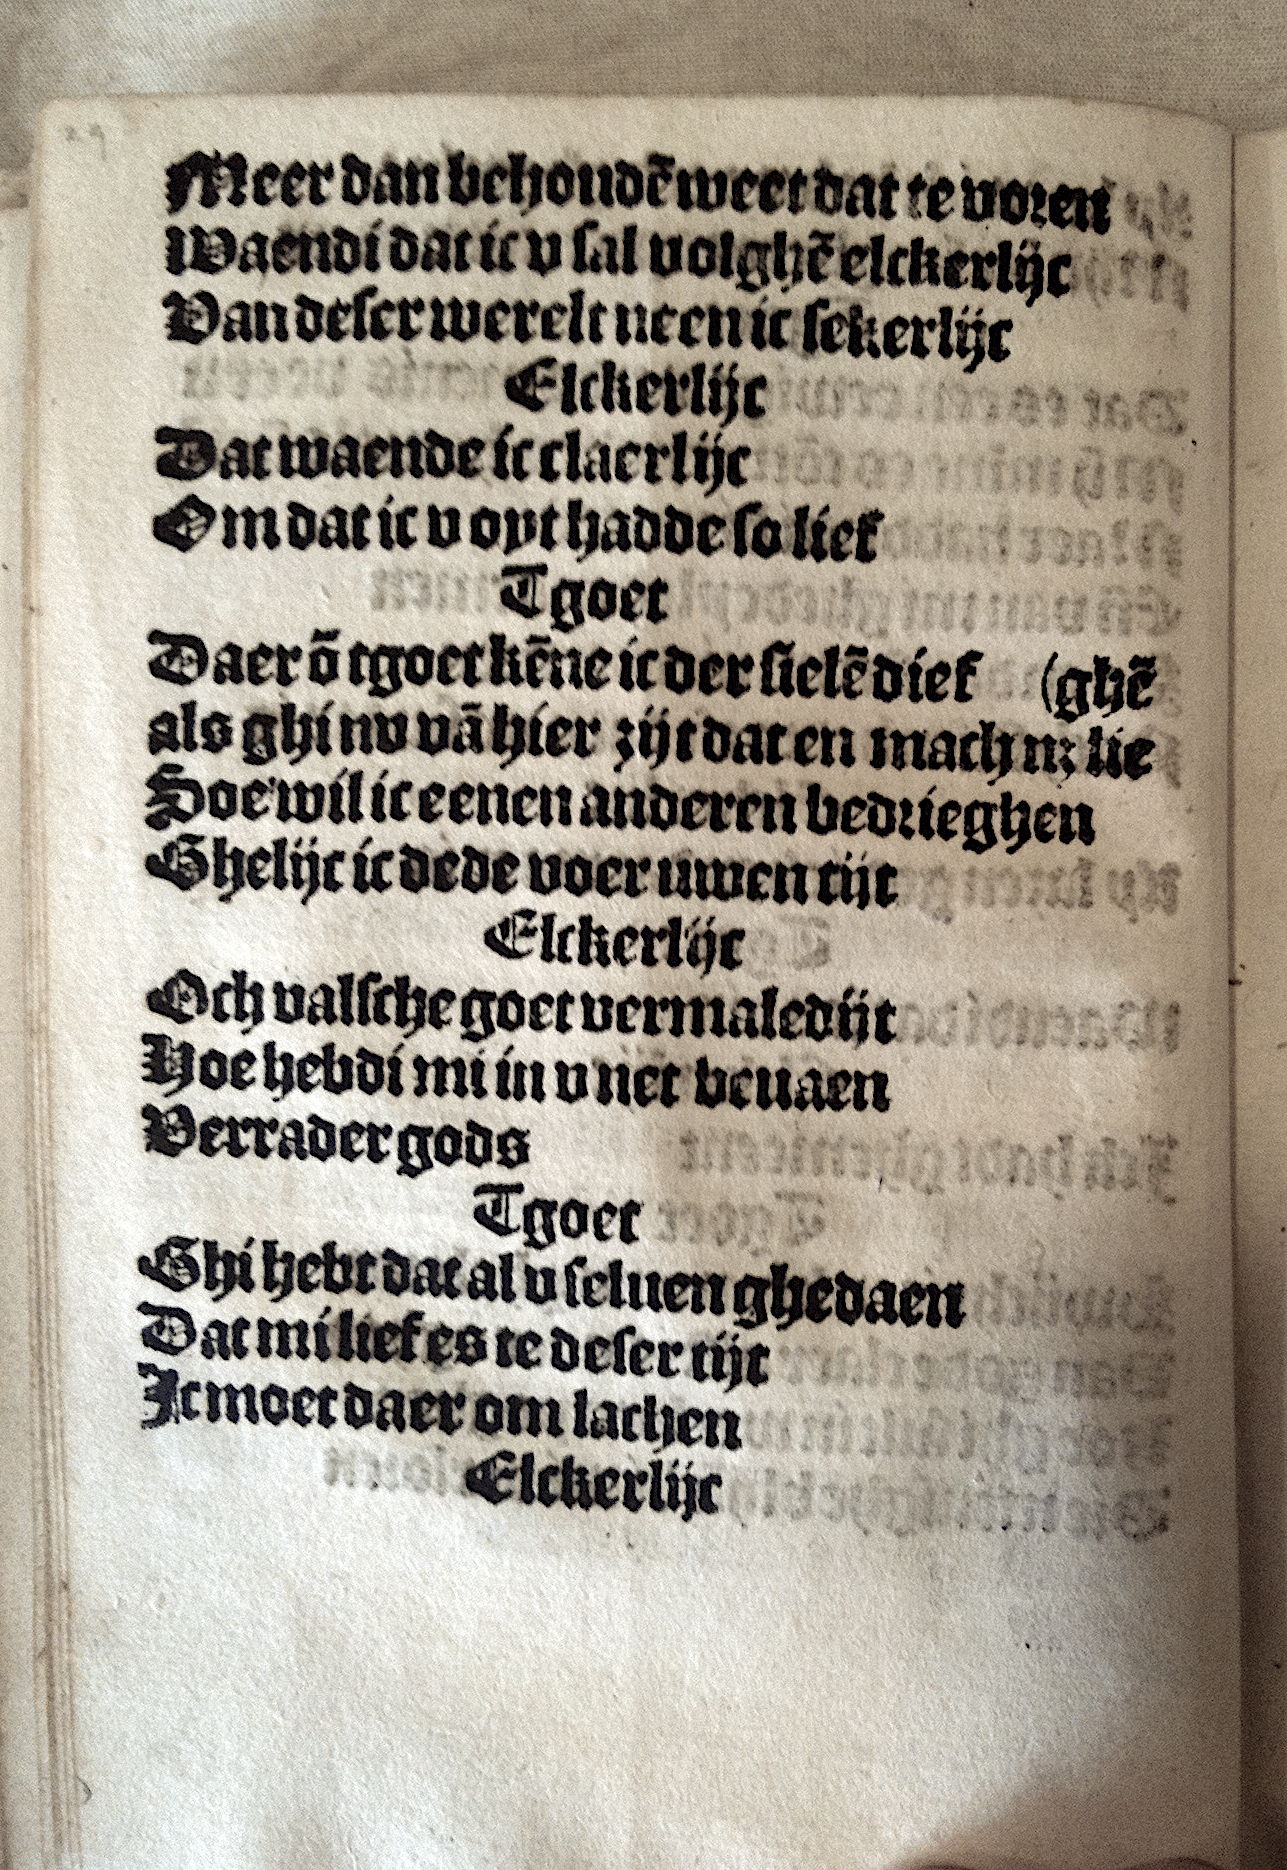 29
Meer dan behoudē weet dat te voren
Waendi dat ic v sal volghē elckerlijc
Van deser werelt neen ic sekerlijc
Elckerlijc
Dat waende ic claerlijc
Om dat ic v oyt hadde so lief
Tgoet
Daer õ tgoet kēne ic der sielē dief (ghē
als ghi nv vā hier zijt dat en mach nz lie
Hoe wil ic eenen anderen bedrieghen
Ghelijc ic dede voer uwen tijt
Elckerlijc
Och valsche goet vermaledijt
Hoe hebdi mi in v net beuaen
Verrader gods
Tgoet
Ghi hebt dat al v seluen ghedaen
Dat mi lief es te deser tijt
Ic moet daer om lachen
Elckerlijc